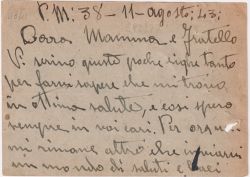 P.M: 38 - 11 - agosto; 43;
Cara Mamma e Fratello
Vi scrivo queste poche righe tanto
per farvi sapere che mi trovo
in ottima salute, e così spero
sempre in voi cari. Per ora
mi rimane altro che inviarvi
un mondo di saluti e baci